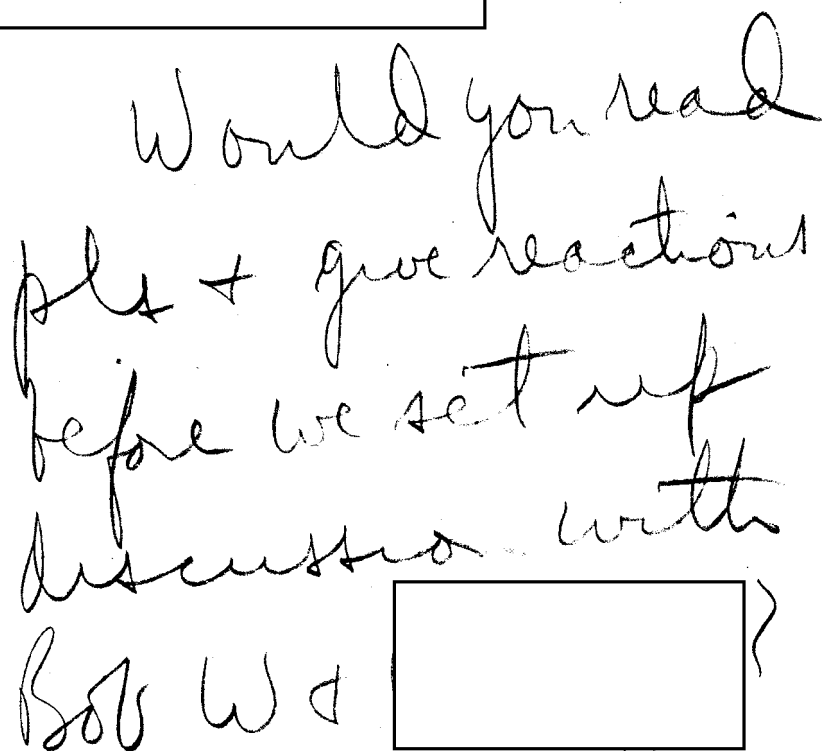 Would you read
pls + give reactions
before we set up
discussion with
Bob W &
?